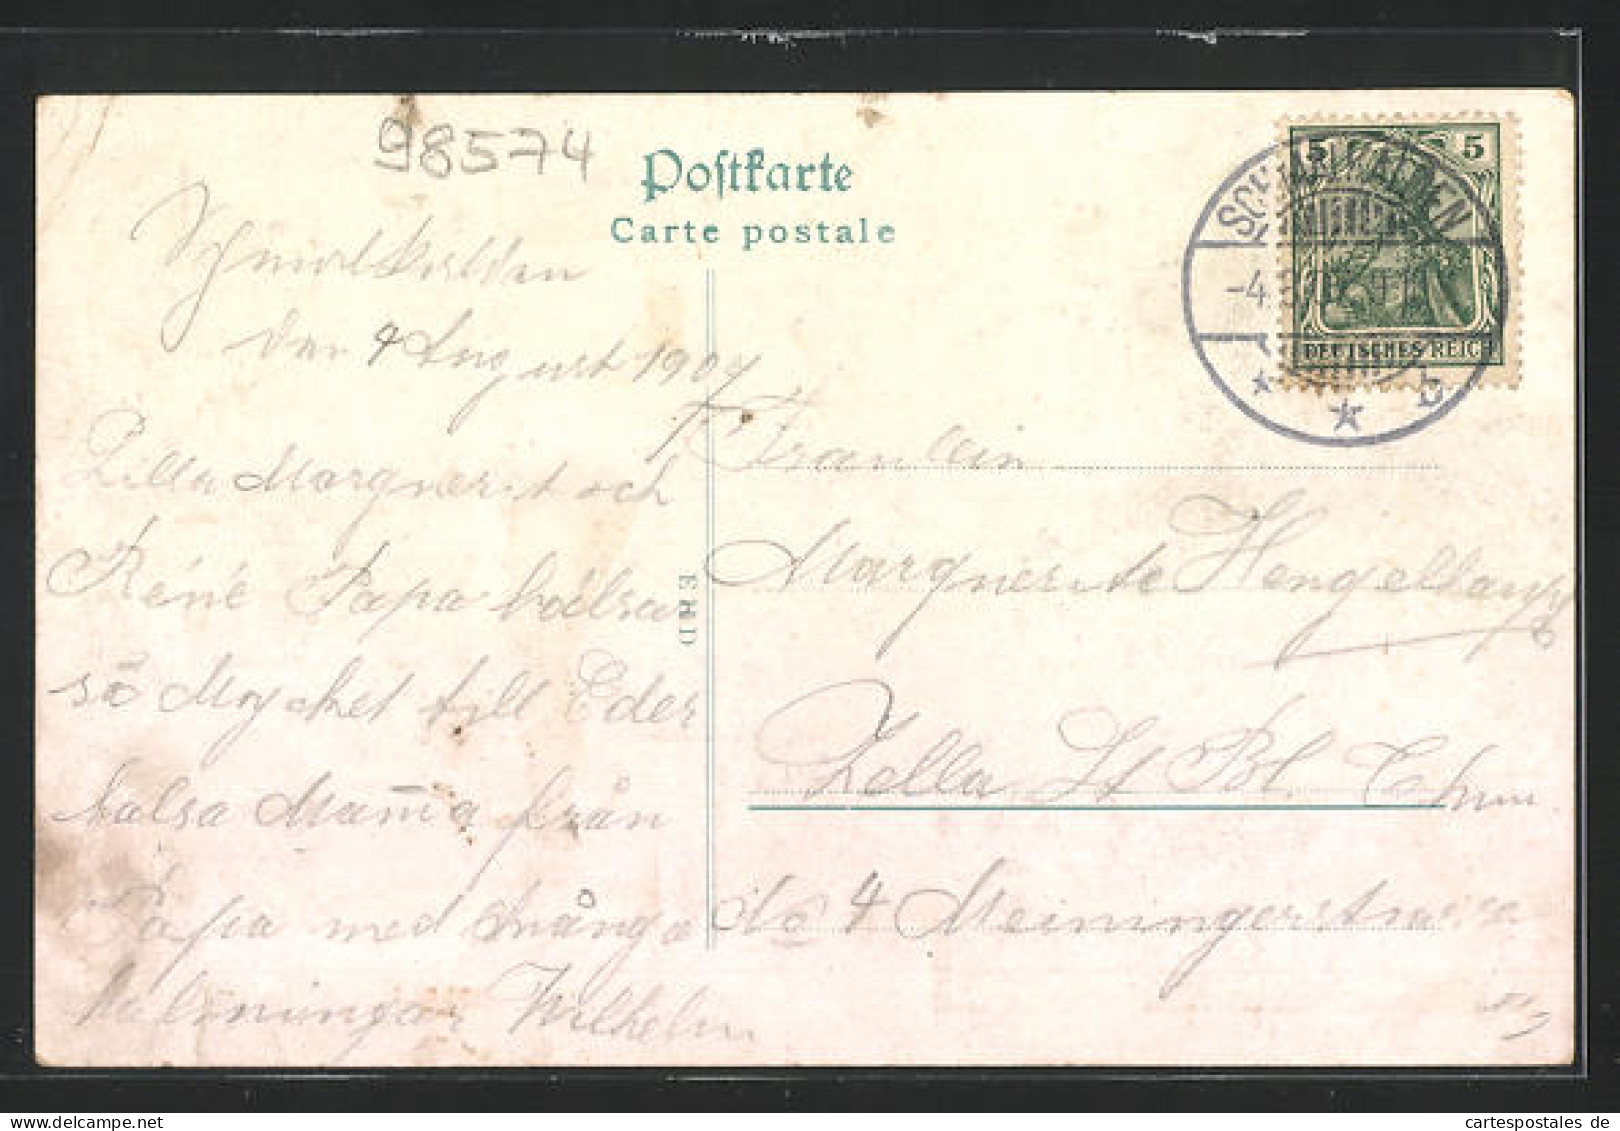 98574
Postkarte
Carte postale
SCHMALKALDEN
-4.
5 5
DEUTSCHES REICH
b
Schmalkalden
den 4 August 1907
Lilla Marguerit och
René Papa hälsar
så Mycket till Eder
halsa Mam̄a från
Papa med många
helsningar Wilhelm
EHD
Fraulein
Marguerite
Zella St Bl. Thur
No 4 Meiningerstrasse
cartespostales de
www.cartespostales.de